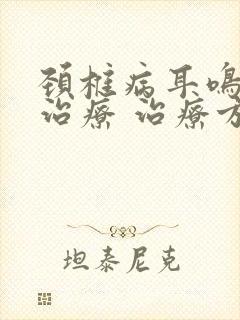 颈椎病耳鸣
治療 治療方
坦泰尼克